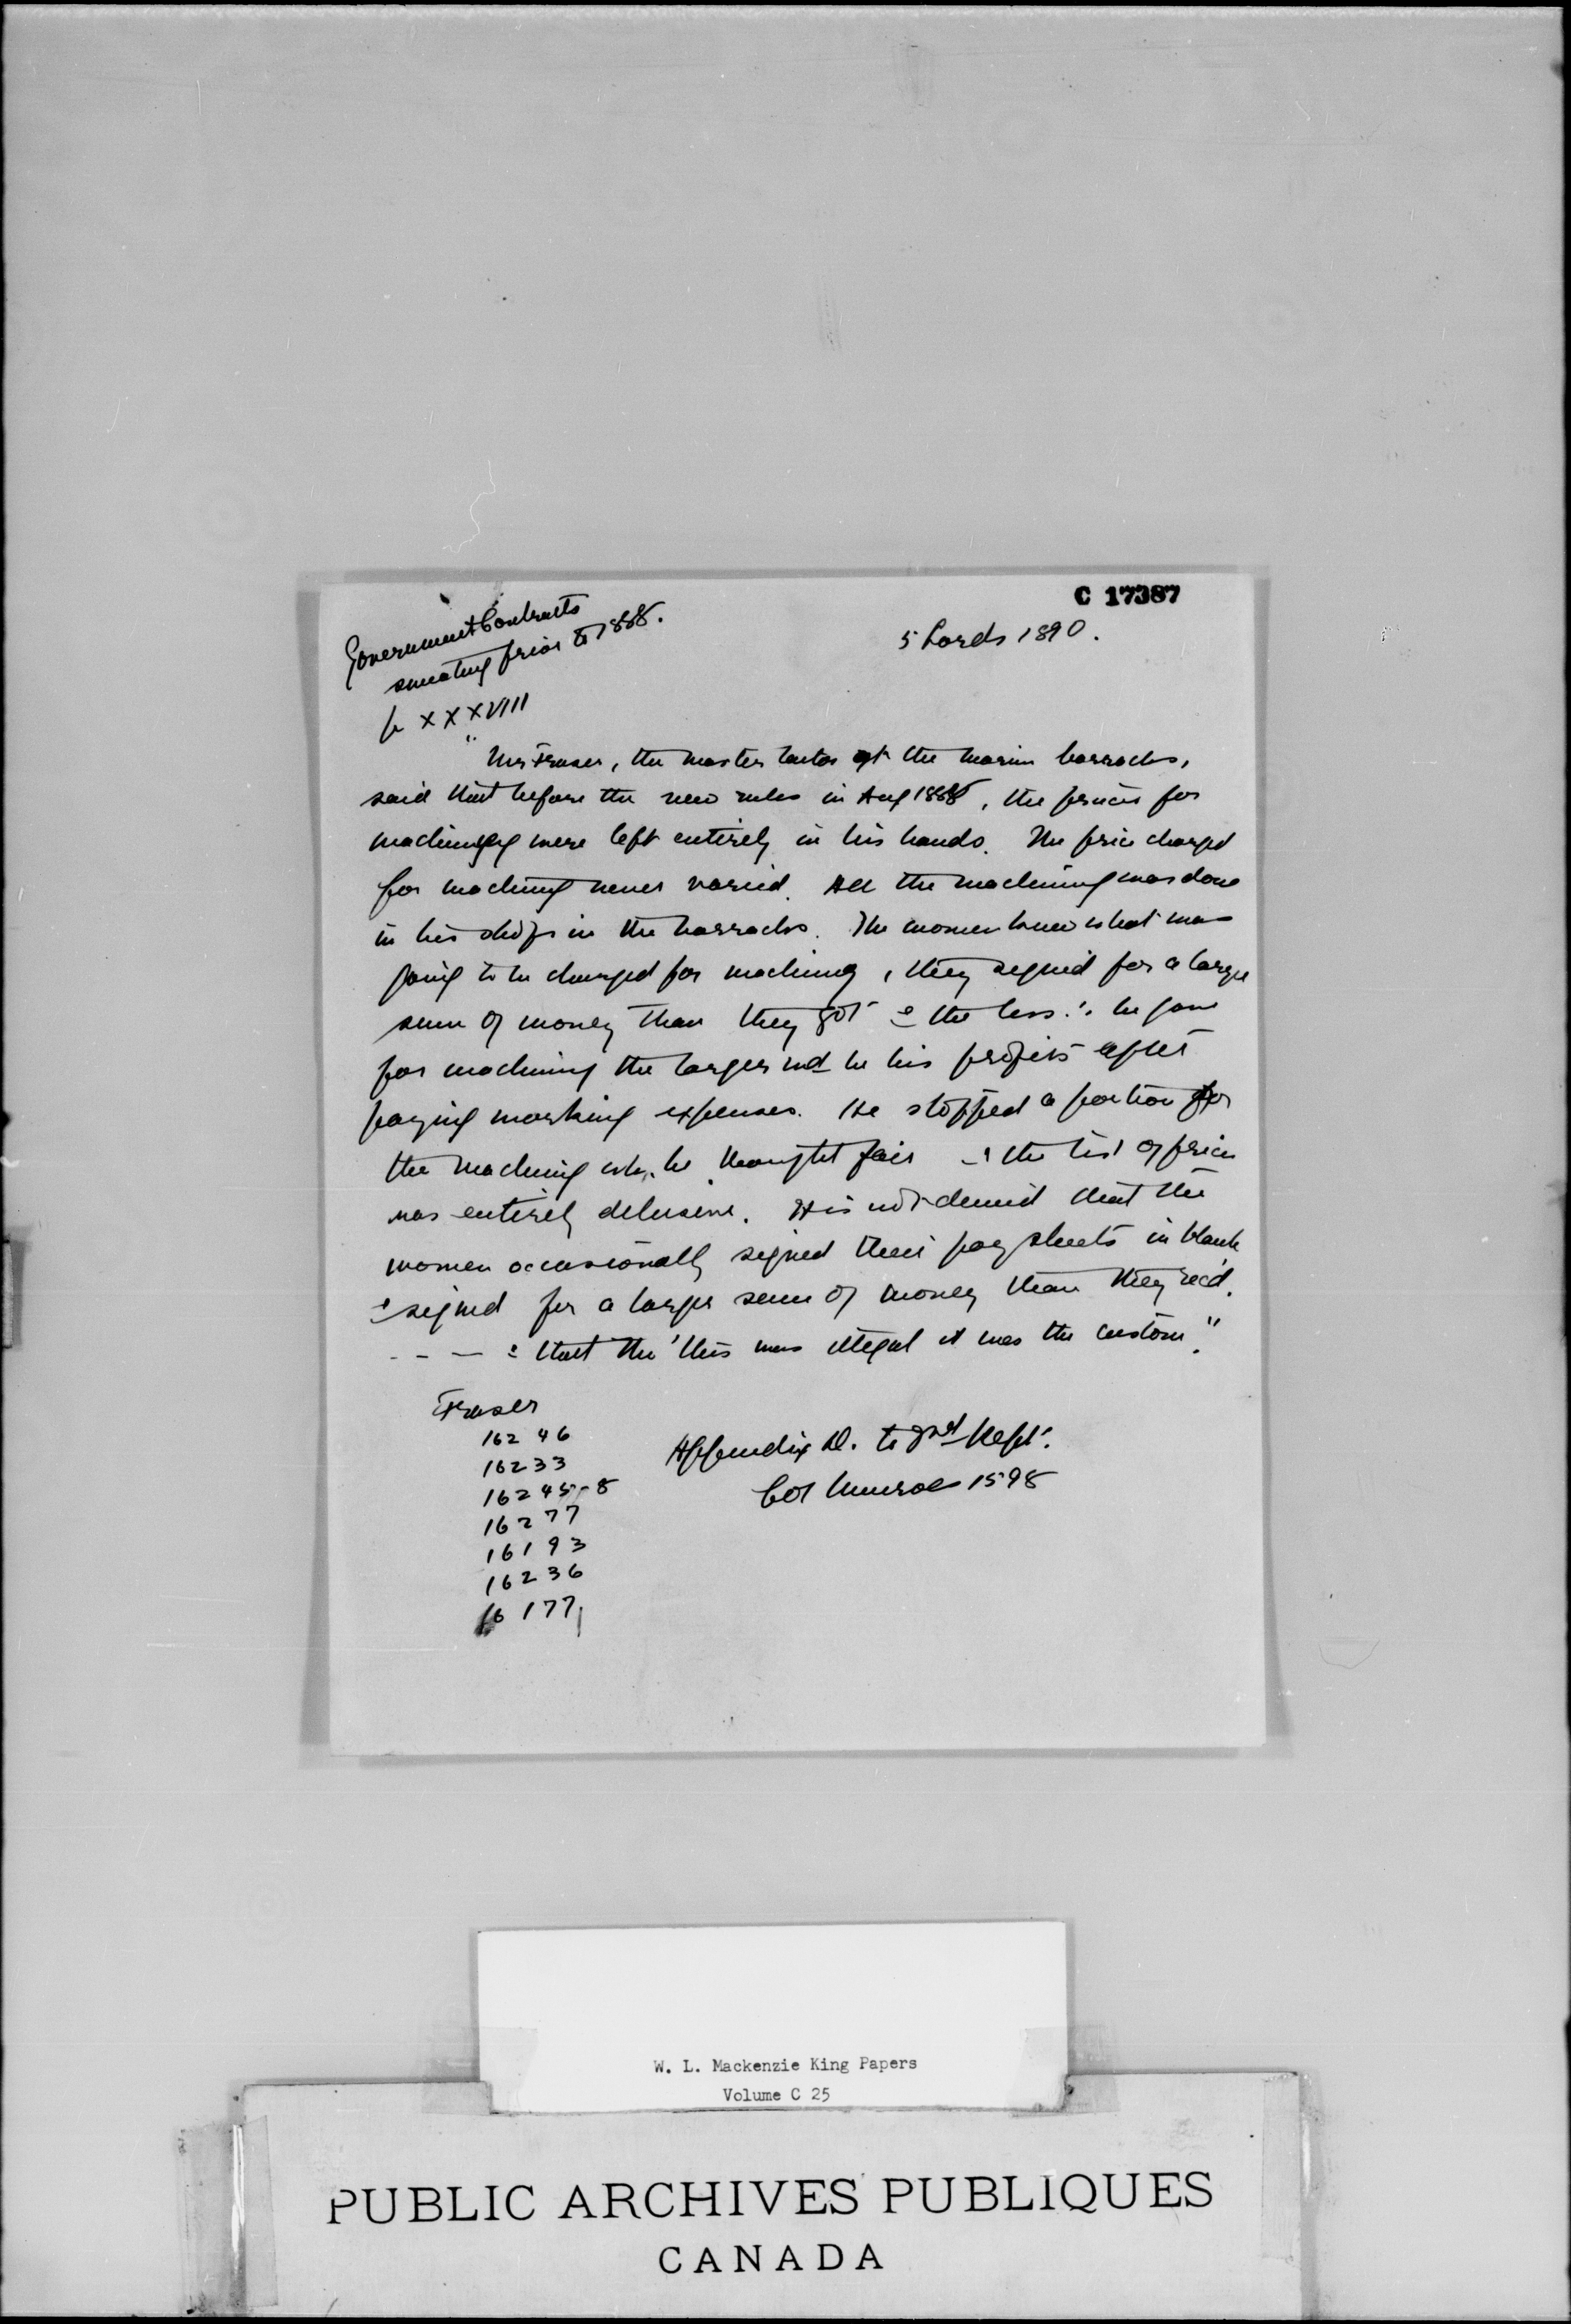 C 17387
Government Contracts
sweating prior to 1888.
5 Lords 1890.
p XXXVIII
"Mr Fraser, the master tailor at the marine barracks,
said that before the new rules in Aug 1888, the prices for
machining were left entirely in his hands. The price charged
for machining never varied. All the machining was done
in his shops in the barracks. The women knew what was
going to be charged for machining, they signed for a larger
sum of money than they got & the less ∴ he gave
for machining the larger wd be his profits after
paying working expenses. He stopped a portion for
the machining wh. he thought fair - & the list of prices
was entirely delusive. It is not denied that the
women occasionally signed their pay sheets in blank
& signed for a larger sum of money than they rec'd.
- - — & that tho' this was illegal it was the custom."
Fraser
16246
16233
16245-8
16277
16193
16236
16177
Appendix D. to 2nd Rept.
Col Munroe 1598
W. L. Mackenzie King Papers
Volume C 25
PUBLIC ARCHIVES PUBLIQUES
CANADA